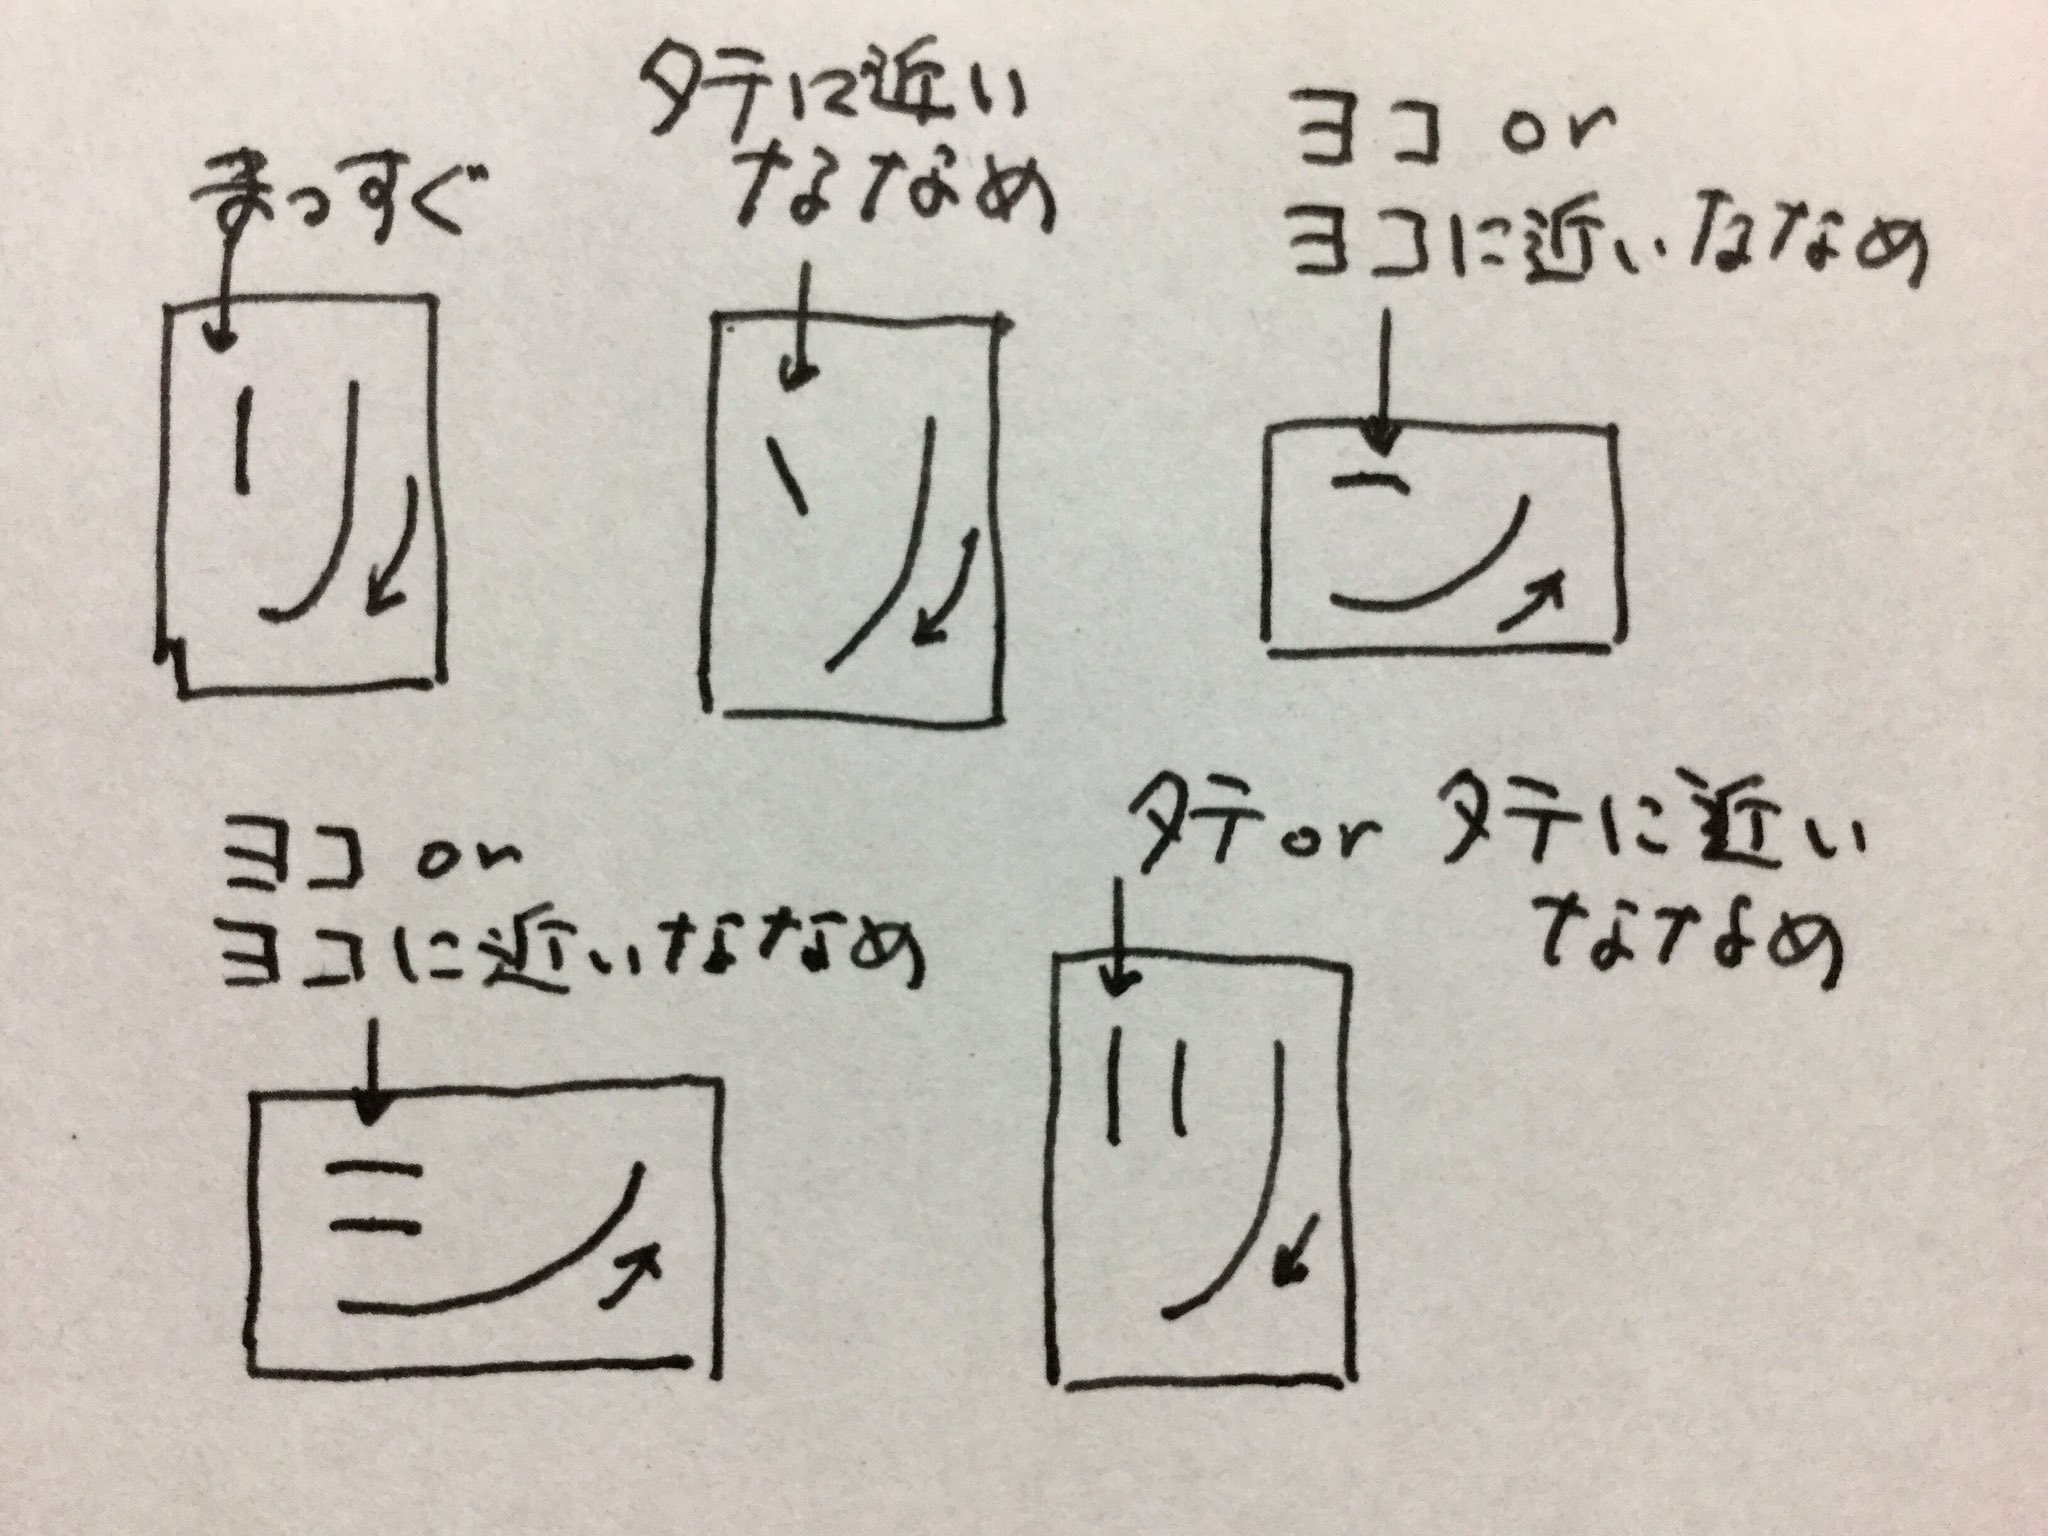 まっすぐ
リ
タテに近い
ななめ
ソ
ヨコ or
ヨコに近いななめ
ン
ヨコ or
ヨコに近いななめ
シ
タテ or タテに近い
ななめ
ツ